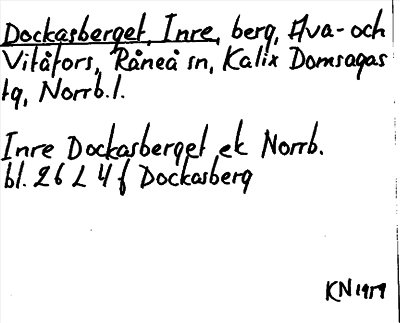 Dockasberget, Inre, berg, Avva- och
Vitåfors, Råneå sn, Kalix Domsagas
tg, Norrb.l.
Inre Dockasberget ek Norrb.
bl. 26 L 4 f Dockasberg
KN 1959